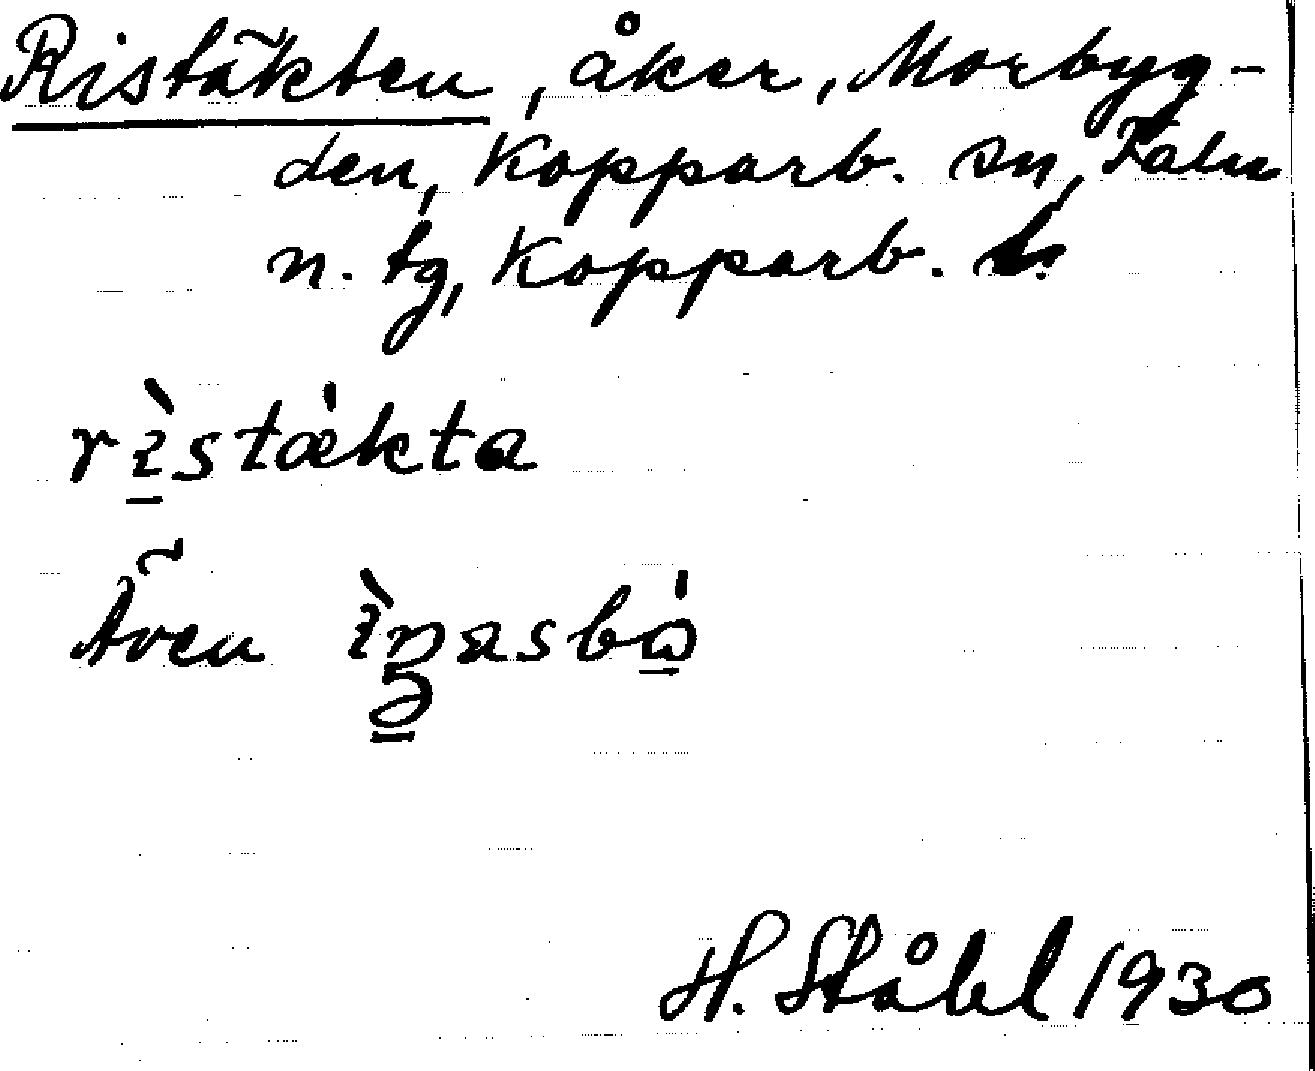 Ristäkten, åker, Morbyg-
den, Kopparb. sn, Falu
n. tg, Kopparb. l.
rìstækta
Även ìŋasbɷ̀
H. Ståhl 1930